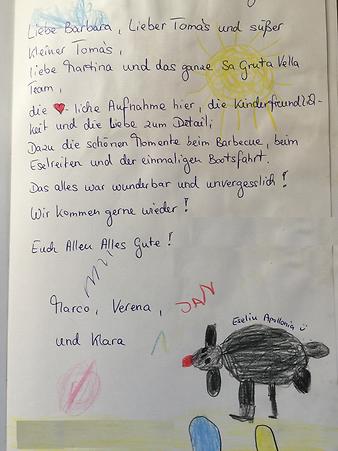 Liebe Barbara, Lieber Tomás und süßer
Kleiner Tomás,
liebe Martina und das ganze Sa Gruta Vella
Team,
die ❤-liche Aufnahme hier, die Kinderfreundlich-
keit und die Liebe zum Detail;
Dazu die schönen Momente beim Barbecue, beim
Eselreiten und der einmaligen Bootsfahrt.
Das alles war wunderbar und unvergesslich!
Wir kommen gerne wieder!
Euch Allen Alles Gute!
Marco, Verena, JAN
und Klara
Eselin Apollonia